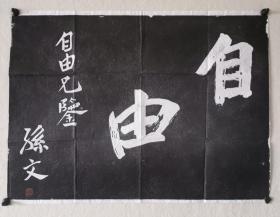 自由
自由兄鑒
孫文